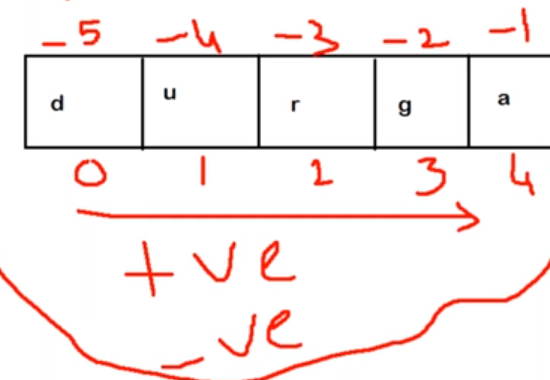 -5 -4 -3 -2 -1
d u r g a
0 1 2 3 4
+ve
-ve